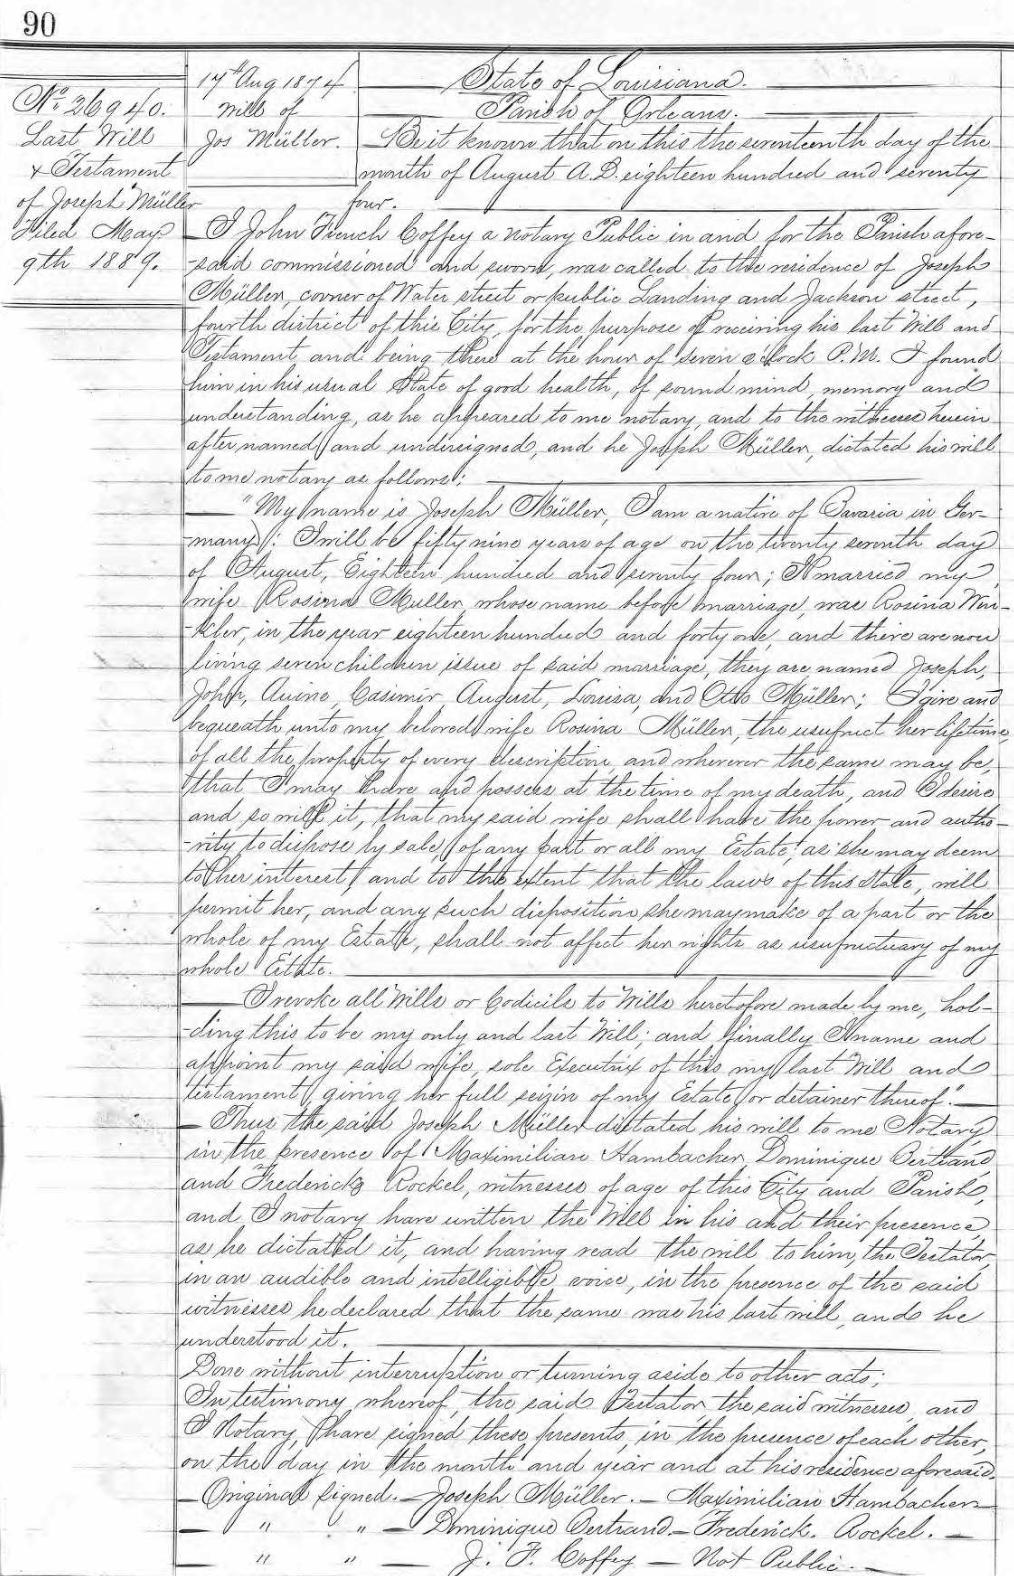 90
No. 26940.
Last Will
& Testament
of Joseph Müller
Filed May
9th 1889.
17th Aug 1874
Will of
Jos Müller.
State of Louisiana.
Parish of Orleans.
Be it known that on this the seventeenth day of the
month of August A.D. eighteen hundred and seventy
four.
I John French Coffey a Notary Public in and for the Parish afore-
-said commissioned and sworn, was called to the residence of Joseph
Müller, corner of Water street or public Landing and Jackson street,
fourth district of this City, for the purpose of receiving his last Will and
Testament and being there at the hour of seven o'clock P.M. I found
him in his usual State of good health, of sound mind, memory and
understanding, as he appeared to me notary, and to the witnesses herein
after named and undersigned, and he Joseph Müller, dictated his will
to me notary as follows:
"My name is Joseph Müller, I am a native of Bavaria in Ger-
-many: I will be fifty nine years of age on the twenty seventh day
of August, Eighteen hundred and seventy four; I married my
wife Rosina Muller, whose name before marriage, was Rosina Win-
-kler, in the year eighteen hundred and forty one, and there are now
living seven children issue of said marriage, they are named Joseph,
John, Casimir August, Louisa, and Otto Müller; I give and
bequeath unto my beloved wife Rosina Müller, the usufruct her lifetime,
of all the property of every description, and wherever the same may be,
that I may have and possess at the time of my death, and I desire
and so will it, that my said wife shall have the power and autho-
-rity to dispose by sale, of any part or all my Estate, as she may deem
to her interest, and to the extent that the laws of this State, will
permit her, and any such disposition she may make of a part or the
whole of my Estate, shall not affect her rights as usufructuary of my
whole Estate.
I revoke all Wills or Codicils to Wills heretofore made by me, hol-
-ding this to be my only and last Will; and finally I name and
appoint my said wife, sole Executrix of this my last Will and
testament, giving her full seizin of my Estate or detainer thereof."
Thus the said Joseph Müller dictated his will to me Notary,
in the presence of Maximilian Hambacher, Dominique Bertrand
and Frederick Rockel, witnesses of age of this City and Parish,
and I notary have written the Will in his and their presence,
as he dictated it, and having read the will to him, the Testator,
in an audible and intelligible voice, in the presence of the said
witnesses he declared that the same was his last will, and he
understood it.
Done without interruption or turning aside to other acts;
In testimony whereof, the said Testator, the said witnesses, and
I Notary, have signed these presents, in the presence of each other,
on the day in the month and year and at his residence aforesaid.
Original signed. — Joseph Müller. — Maximilian Hambacher —
— " " — Dominique Bertrand. — Frederick. Rockel. —
— " " — J. F. Coffey — Not Public. —